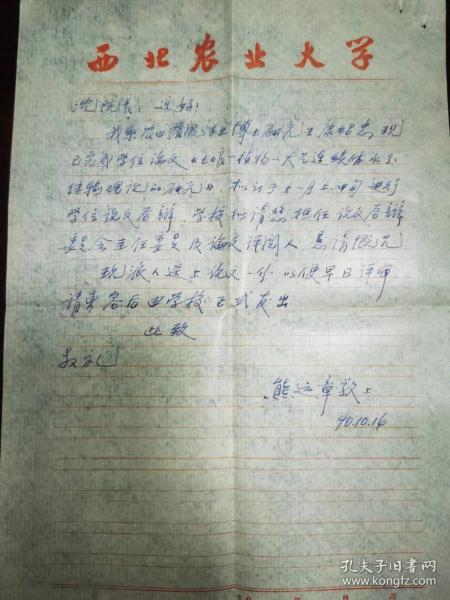 西北农业大学
沈院长：近好！
我系农田灌溉专业博士研究生康绍忠，现
已完成学位论文《土壤－植物－大气连续体水分
传输理论的研究》，拟订于十一月上、中旬进行
学位论文答辩，学校拟请您担任论文答辩
委员会主任委员及论文评阅人，恳请概允
现派人送上论文一份，以便早日评审
请柬容后由学校正式发出
此致
敬礼
熊运章敬上
90.10.16
孔夫子旧书网
www.kongfz.com